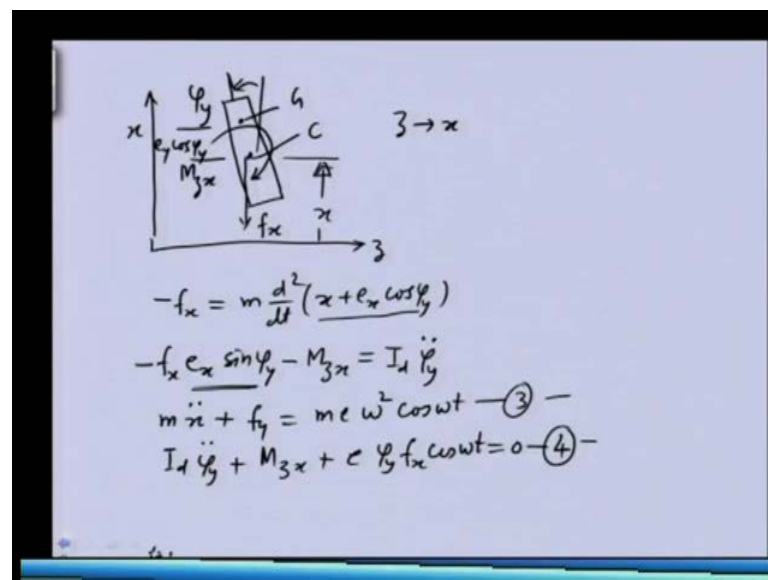 φy G
x C z → x
ey cosφy
Mzx
x
fx z
-fx = m d²/dt (x + ex cosφy)
-fx ex sinφy - Mzx = Id φ̈y
mẍ + fy = m e ω² cosωt — ③ —
Id φ̈y + Mzx + e φy fx cosωt = 0 — ④ —